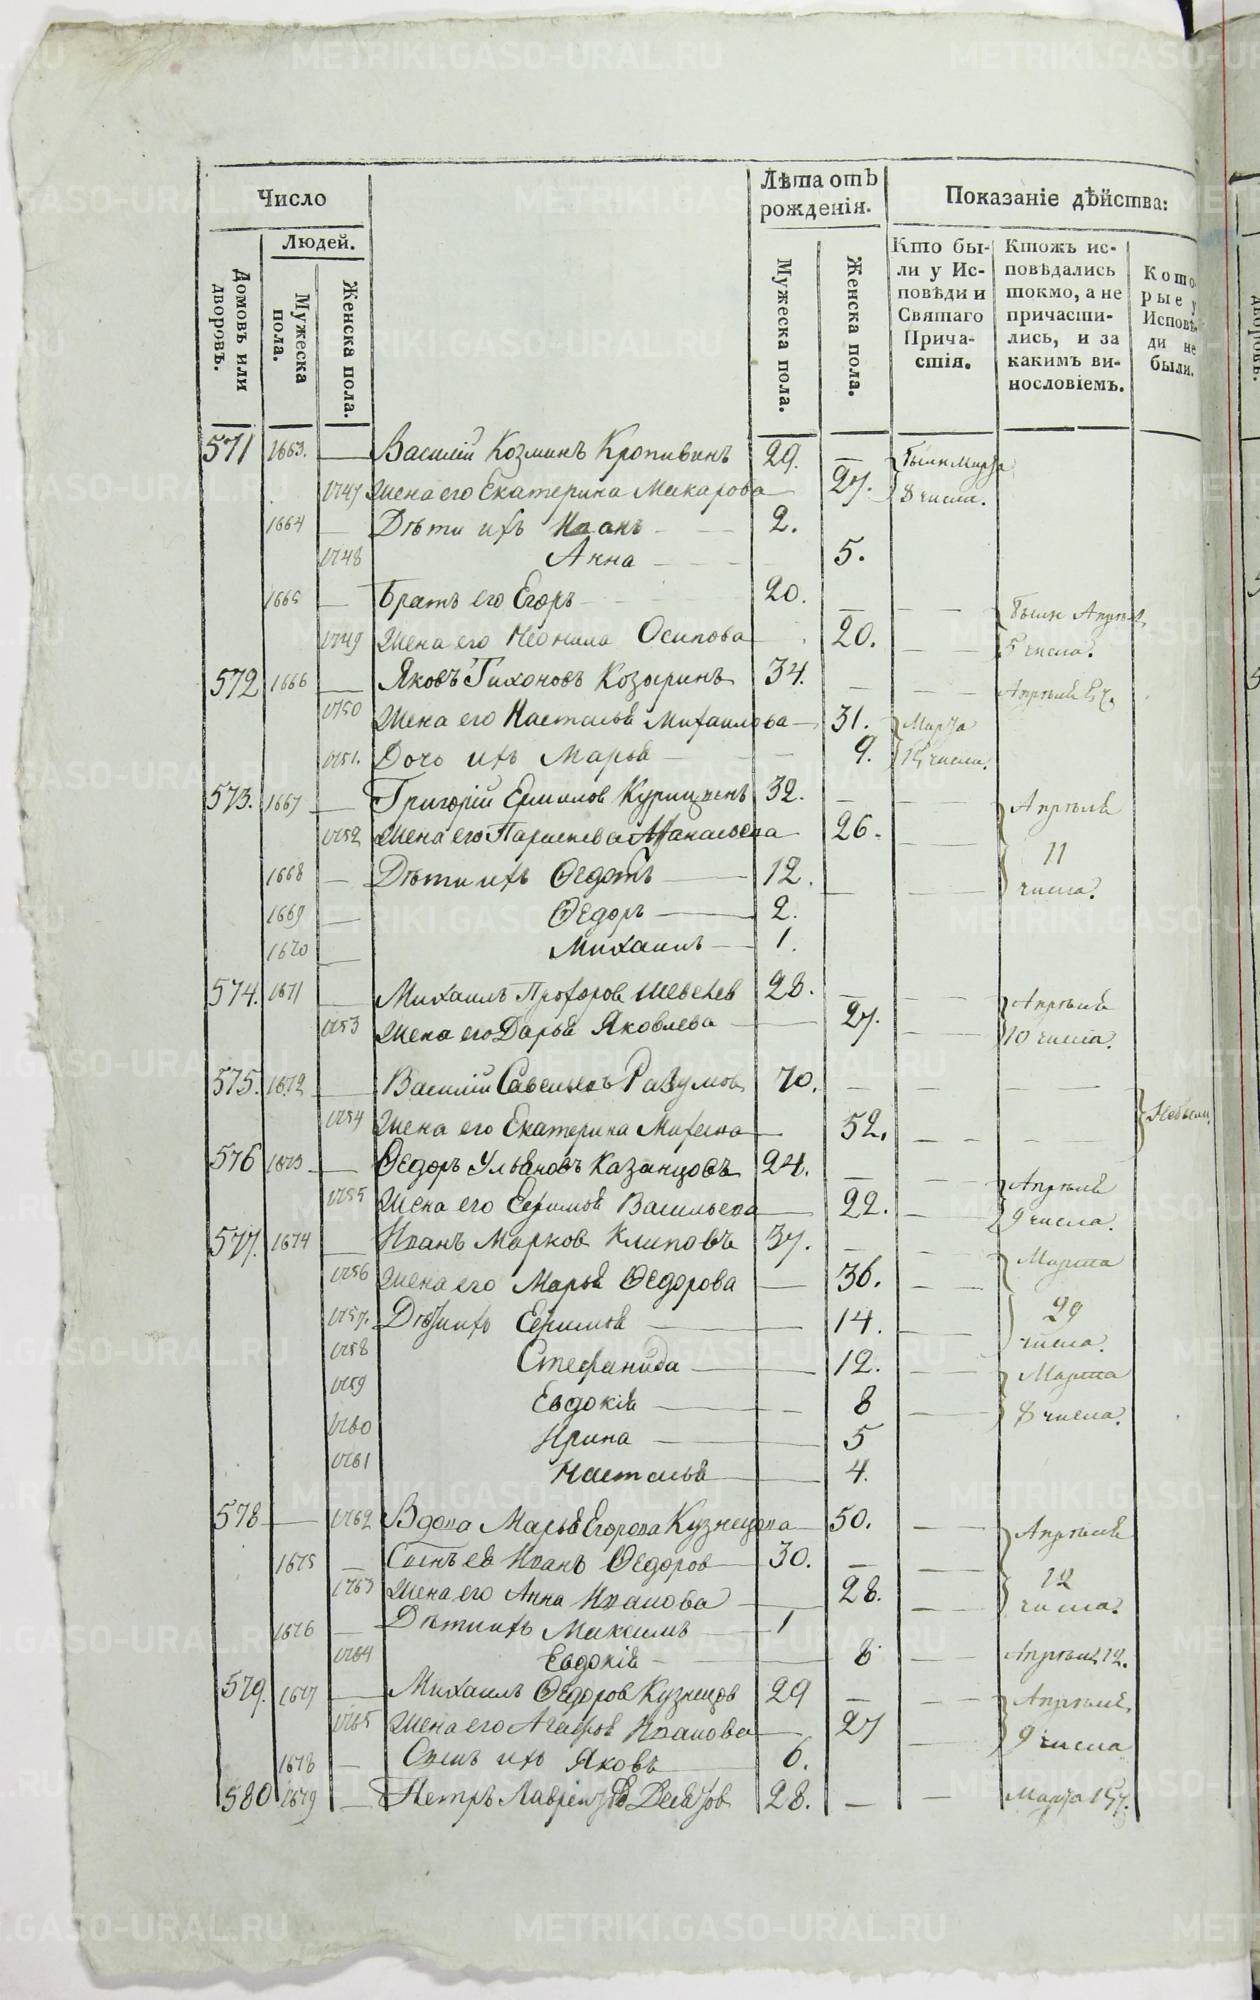 Число
Лѣта отъ рожденія.
Показаніе дѣйства:
Людей.
Домовъ или дворовъ.
Мужеска пола.
Женска пола.
Мужеска пола.
Женска пола.
Кто бы-
ли у Ис-
повѣди и
Святаго
Прича-
стія.
Ктожъ ис-
повѣдались
токмо, а не
причасти-
лись, и за
какимъ ви-
нословіемъ.
Кото-
рые у
Исповѣ-
ди не
были.
571 1663. Василій Козминъ Кропивинъ 29. Были Марта
1747 Жена его Екатерина Макарова 27. 8 числа.
1664 Дѣти ихъ Иванъ 2.
1748 Анна 5.
1665 Братъ его Егоръ 20. Были Апрѣля
1749 Жена его Осипова 20. 5 числа.
572 1666 Яковъ Тихоновъ Козыринъ 34. Апрѣля
1750 Жена его Настасья Михаилова 31. Марта
1751. Дочь ихъ Марья 9. числа.
573. 1667 Григорій Ермилов Курицынъ 32. Апрѣля
1752 Жена его Параскева Афанасьева 26. 11
1668 Дѣти ихъ Ѳедотъ 12. числа.
1669 Ѳедоръ 2.
1670 Михаилъ 1.
574. 1671 Михаилъ Прохоров Шевелев 28. Апрѣля
1753 Жена его Дарья Яковлева 27. 10 числа.
575. 1672 Василій Савельевъ Разумов 70.
1754 Жена его Екатерина 52. Небыли
576 1673 Ѳедоръ Ульяновъ Казанцовъ 24. Апрѣля
1755 Жена его Васильева 22. 9 числа.
577. 1674 Иванъ Марков Клиповъ 37. Марта
1756 Жена его Марья Ѳедорова 36. 29
1757. Дѣти ихъ 14. числа.
1758 Стефанида 12. Марта
1759 Евдокія 8 8 числа.
1760 Ирина 5
1761 Настасья 4.
578 1762 Вдова Марья Егорова Кузнецова 50. Апрѣля
1675 Сынъ ея Иванъ Ѳедоров 30. 12
1763 Жена его Анна Иванова 28. числа.
1676 Дѣти ихъ Максимъ 1
1764 Евдокія 8 Апрѣля 12.
579. 1677 Михаилъ Ѳедоров Кузнецов 29 Апрѣля
1765 Жена его Агафья Иванова 27 9 числа
1678 Сынъ ихъ Яковъ 6.
580 1679 Петръ Лаврентьев Девятов 28. Марта
METRIKI.GASO-URAL.RU